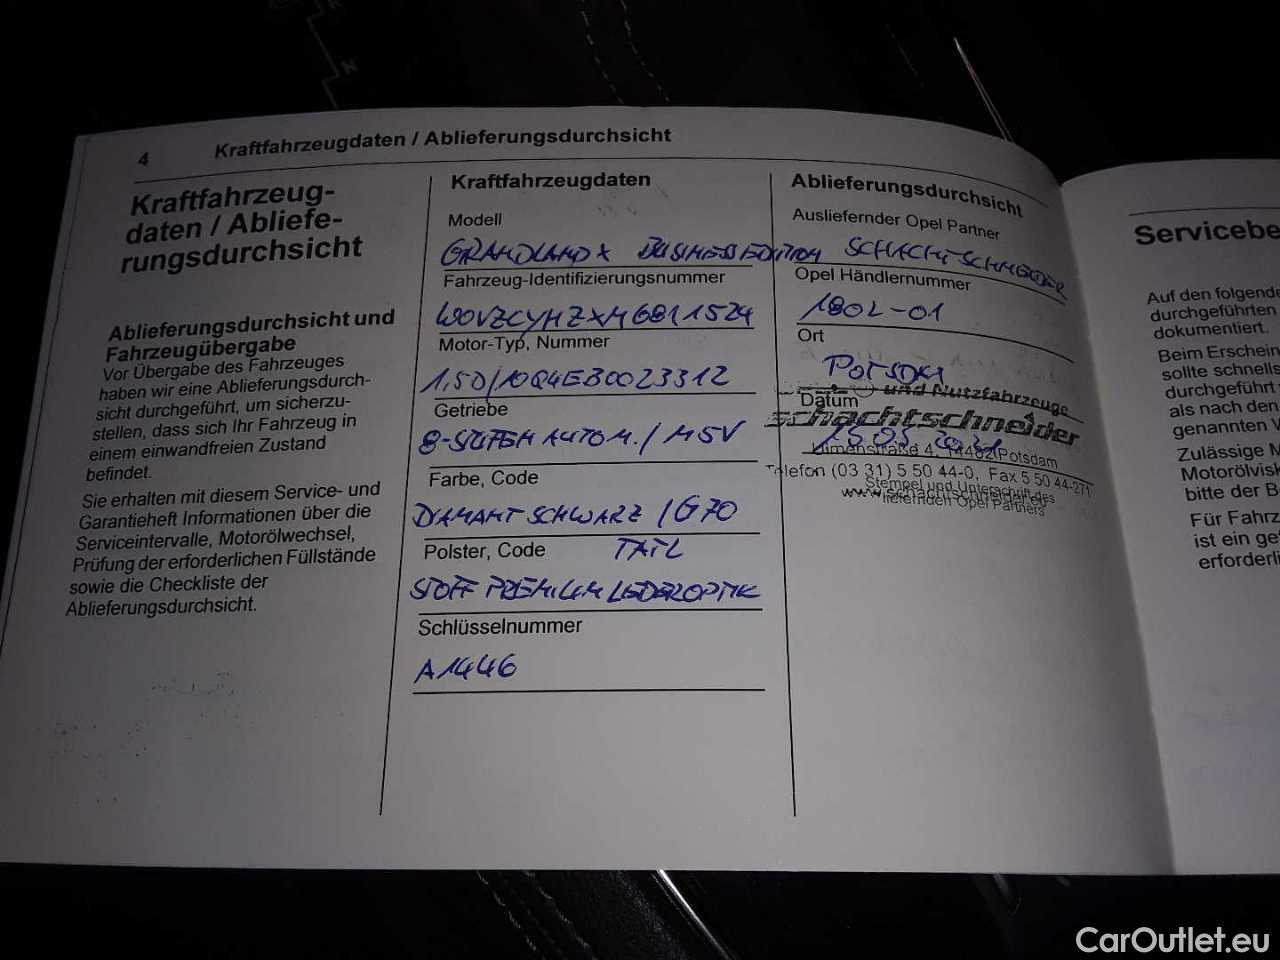 4 Kraftfahrzeugdaten / Ablieferungsdurchsicht
Kraftfahrzeug-
daten / Abliefe-
rungsdurchsicht
Ablieferungsdurchsicht und
Fahrzeugübergabe
Vor Übergabe des Fahrzeuges
haben wir eine Ablieferungsdurch-
sicht durchgeführt, um sicherzu-
stellen, dass sich Ihr Fahrzeug in
einem einwandfreien Zustand
befindet.
Sie erhalten mit diesem Service- und
Garantieheft Informationen über die
Serviceintervalle, Motorölwechsel,
Prüfung der erforderlichen Füllstände
sowie die Checkliste der
Ablieferungsdurchsicht.
Kraftfahrzeugdaten
Modell
GRANDLAND X BUSINESS EDITION
Fahrzeug-Identifizierungsnummer
W0VZCYHZXM6811524
Motor-Typ, Nummer
1,5D/10Q4EB0023312
Getriebe
8-STUFEN AUTOM. / M5V
Farbe, Code
DIAMANT SCHWARZ / G70
Polster, Code TATL
STOFF PREMIUM LEDEROPTIK
Schlüsselnummer
A1446
Ablieferungsdurchsicht
Ausliefernder Opel Partner
SCHACHTSCHNEIDER
Opel Händlernummer
1802-01
Ort
POTSDAM
und Nutzfahrzeuge
Datum
schachtschneider
Ulmenstraße 4, 14482 Potsdam
Telefon (03 31) 5 50 44-0, Fax 5 50 44-271
Stempel und Unterschrift des
www.schachtschneider.de
liefernden Opel Partners
Servicebe
Auf den folgende
durchgeführten
dokumentiert.
Beim Erschein
sollte schnells
durchgeführt
als nach den
genannten W
Zulässige M
Motorölvisk
bitte der B
Für Fahrz
ist ein ge
erforderli
CarOutlet.eu